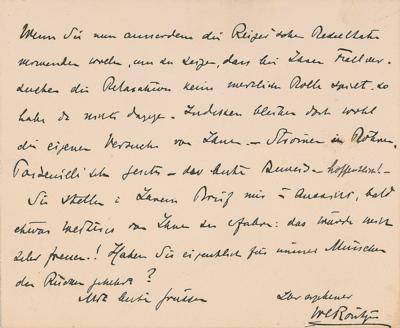 Wenn Sie nun ausserdem die Reiger'schen Resultate
verwenden wollen, um zu zeigen, dass bei Ihren Fallver-
suchen die Relaxation keine merkliche Rolle spielt, so
habe ich nichts dagegen. Indessen bleiben doch wohl
die eigenen Versuche von Ihnen – Strömen in Röhren,
– der beste Beweis – hoffentlich! –
Sie stellen in Ihrem Brief mir in Aussicht, bald
etwas Weiteres von Ihnen zu erfahren: das würde mich
sehr freuen! Haben Sie eigentlich für immer München
den Rücken gekehrt?
Mit besten Grüssen
Ihr ergebener
WCRöntgen